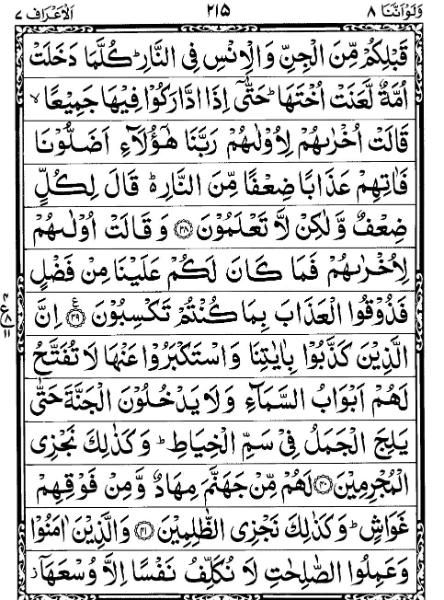 ولواننا ٨ ٢١۵ الاعراف ٧
قَبْلِكُمْ مِّنَ الْجِنِّ وَالْاِنْسِ فِی النَّارِ ؕ كُلَّمَا دَخَلَتْ
اُمَّةٌ لَّعَنَتْ اُخْتَهَا ؕ حَتّٰۤی اِذَا ادَّارَكُوْا فِیْهَا جَمِیْعًا ۙ
قَالَتْ اُخْرٰىهُمْ لِاُوْلٰىهُمْ رَبَّنَا هٰۤؤُلَآءِ اَضَلُّوْنَا
فَاٰتِهِمْ عَذَابًا ضِعْفًا مِّنَ النَّارِ ؕ قَالَ لِكُلٍّ
ضِعْفٌ وَّ لٰكِنْ لَّا تَعْلَمُوْنَ ﴿۳۸﴾ وَ قَالَتْ اُوْلٰىهُمْ
لِاُخْرٰىهُمْ فَمَا كَانَ لَكُمْ عَلَیْنَا مِنْ فَضْلٍ
فَذُوْقُوا الْعَذَابَ بِمَا كُنْتُمْ تَكْسِبُوْنَ ﴿۳۹﴾ اِنَّ
الَّذِیْنَ كَذَّبُوْا بِاٰیٰتِنَا وَ اسْتَكْبَرُوْا عَنْهَا لَا تُفَتَّحُ
لَهُمْ اَبْوَابُ السَّمَآءِ وَ لَا یَدْخُلُوْنَ الْجَنَّةَ حَتّٰی
یَلِجَ الْجَمَلُ فِیْ سَمِّ الْخِیَاطِ ؕ وَ كَذٰلِكَ نَجْزِی
الْمُجْرِمِیْنَ ﴿۴۰﴾ لَهُمْ مِّنْ جَهَنَّمَ مِهَادٌ وَّ مِنْ فَوْقِهِمْ
غَوَاشٍ ؕ وَ كَذٰلِكَ نَجْزِی الظّٰلِمِیْنَ ﴿۴۱﴾ وَ الَّذِیْنَ اٰمَنُوْا
وَ عَمِلُوا الصّٰلِحٰتِ لَا نُكَلِّفُ نَفْسًا اِلَّا وُسْعَهَاۤ ز